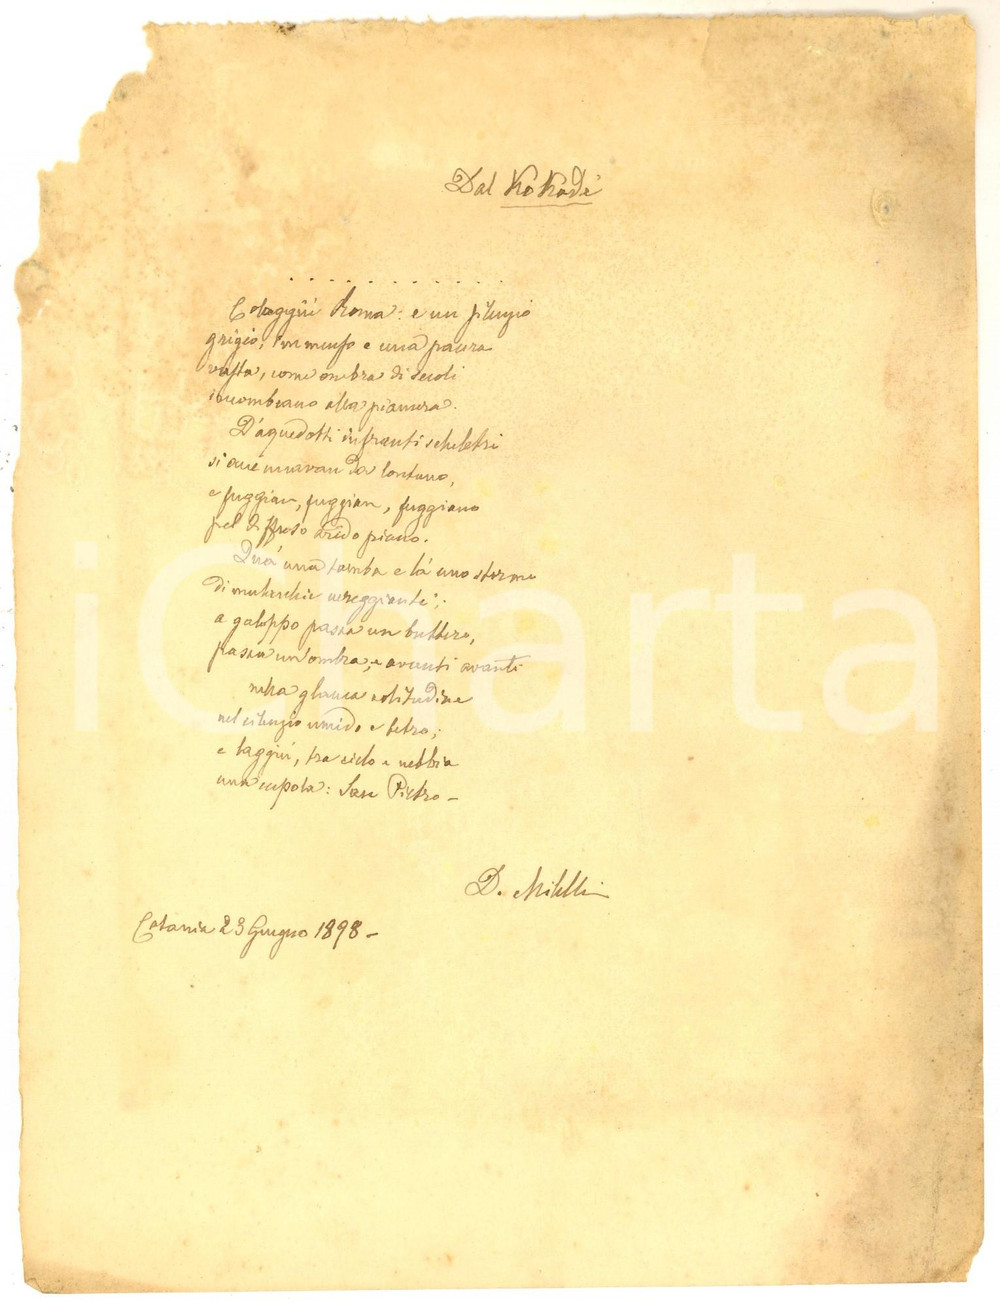 Dal KôKodè
. . . . . . . . . . . .
Colaggiù Roma: e un silenzio
grigio, immenso e una paura
vasta, come ombra di secoli
incombeano alla pianura.
D'aquedotti infranti scheletri
si avanzavan da lontano,
e fuggian, fuggian, fuggiano
pel diffuso arido piano.
Quà una tomba e là uno stormo
di mulacchie vereggianti;
a galoppo passa un buttero,
passa un'ombra, e avanti avanti
nella glauca solitudine
nel silenzio umido e tetro;
e laggiù, tra cielo e nebbia
una cupola: San Pietro –
D. Milelli
Catania 23 Giugno 1898 –
iCharta